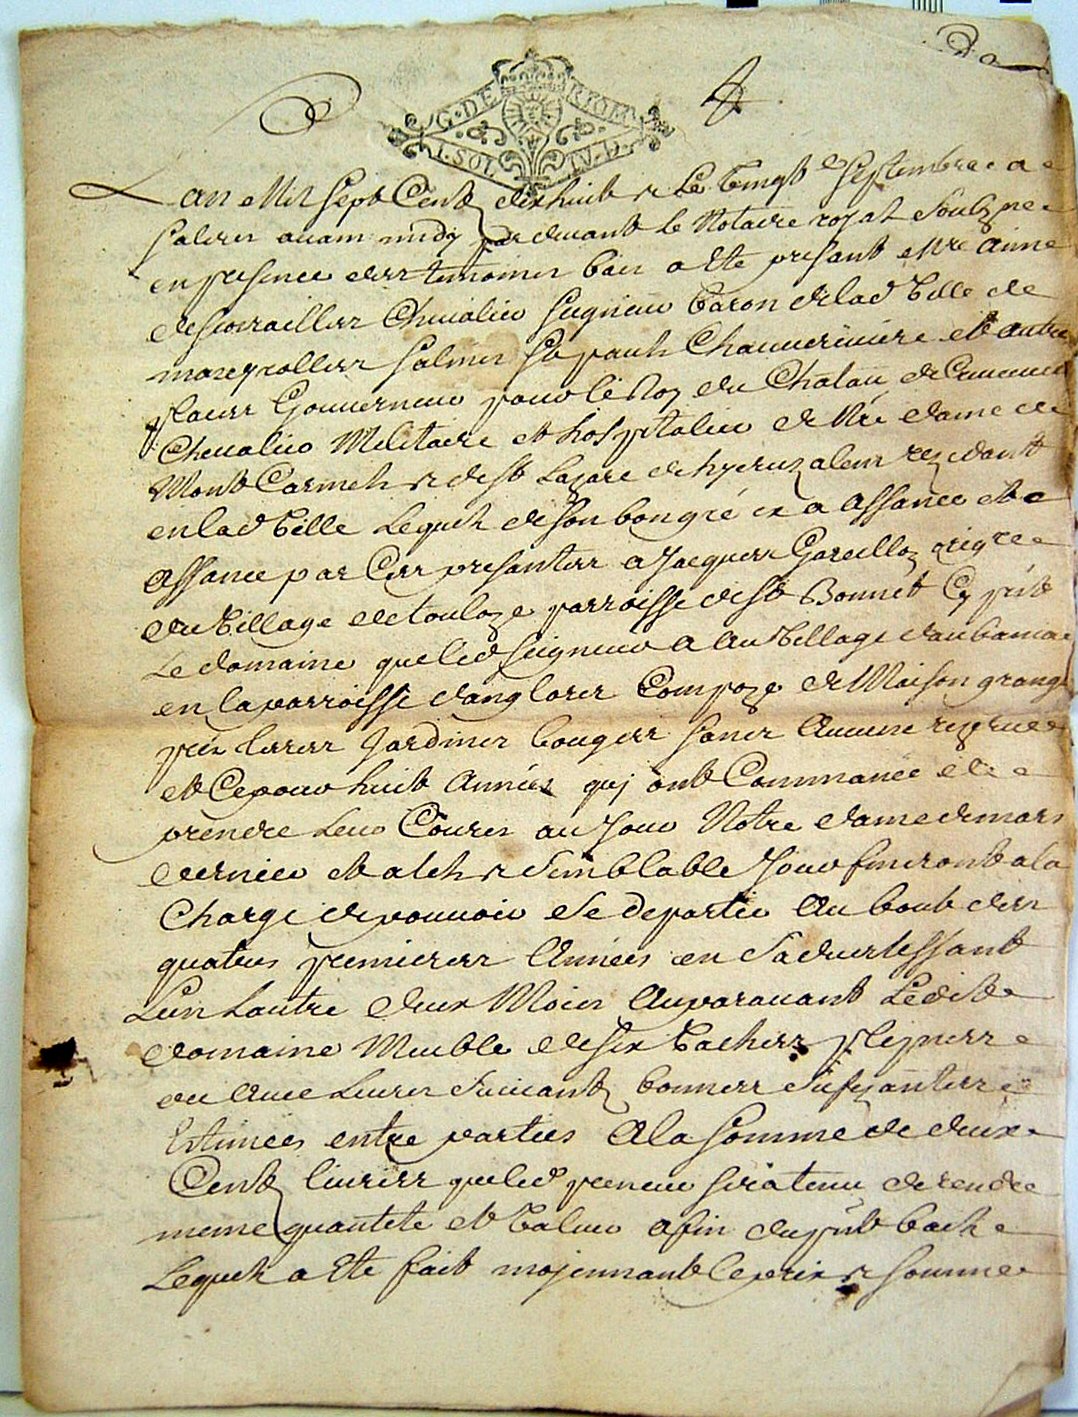 G. DE RIOM
1. SOL IV. D.
Lan Mil sept Centz dix huit & Le Vingt septembre a
salers avant midy par devant le Notaire royal soubzne
en presence des temoins bas a ete presant Mre aime
descorailles Chevalier seigneur baron de lad Ville de
mazeyrolles salers st paul Chauveriviere et autre
places Gouverneur pour le Roy du Chatau de
Chevalier Militaire et hospitalier de Nre dame de
Mont Carmel & de st Lazare de hyeruzalem rezidant
en lad Ville Lequel de son bon gré a affance et
affance par Ces presantes a Jacques
du Village de touloze parroisse de st Bonnet Cy pnt
Le domaine que led seigneur a au Village
en la parroisse danglares Compoze de Maison grange
prés terres Jardins bouges sans Aucune rezerve
et Ce pour huit Années qui ont Commancé de
prendre leur Cours au Jour Notre dame de mars
dernier et a tel & semblable Jour finiront a la
Charge de pouvoir se departir Au bout des
quatres premieres Années en sadvertissant
Lun Lautre deux Mois Auparavant Ledit
domaine Meuble de six Vaches pleynes
ou Avec Leurs suivantz bonnes sufizantes
Estimées entre parties A la somme de deux
Centz livres que led preneur sera tenu de rendre
meme quantité et Valeur a fin du pnt bail
Lequel a Ete fait mojennant Le prix & somme